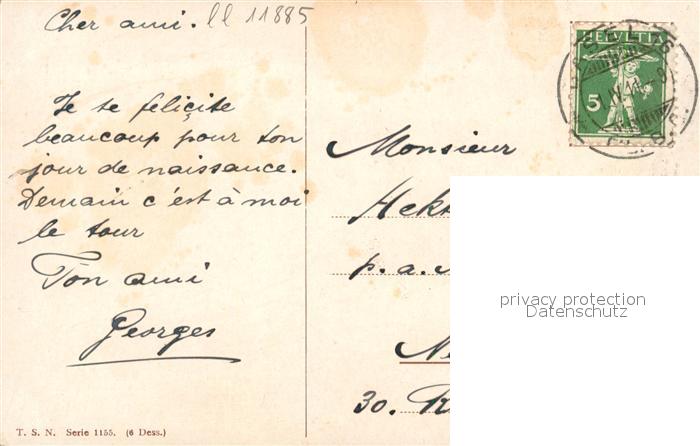 Cher ami. ll 11885
Je te felicite
beaucoup pour ton
jour de naissance.
Demain c'est à moi
le tour
Ton ami
Georges
T. S. N. Serie 1155. (6 Dess.)
HELVETIA
5
Monsieur
Hekt
p. a.
Ne
30.
privacy protection
Datenschutz